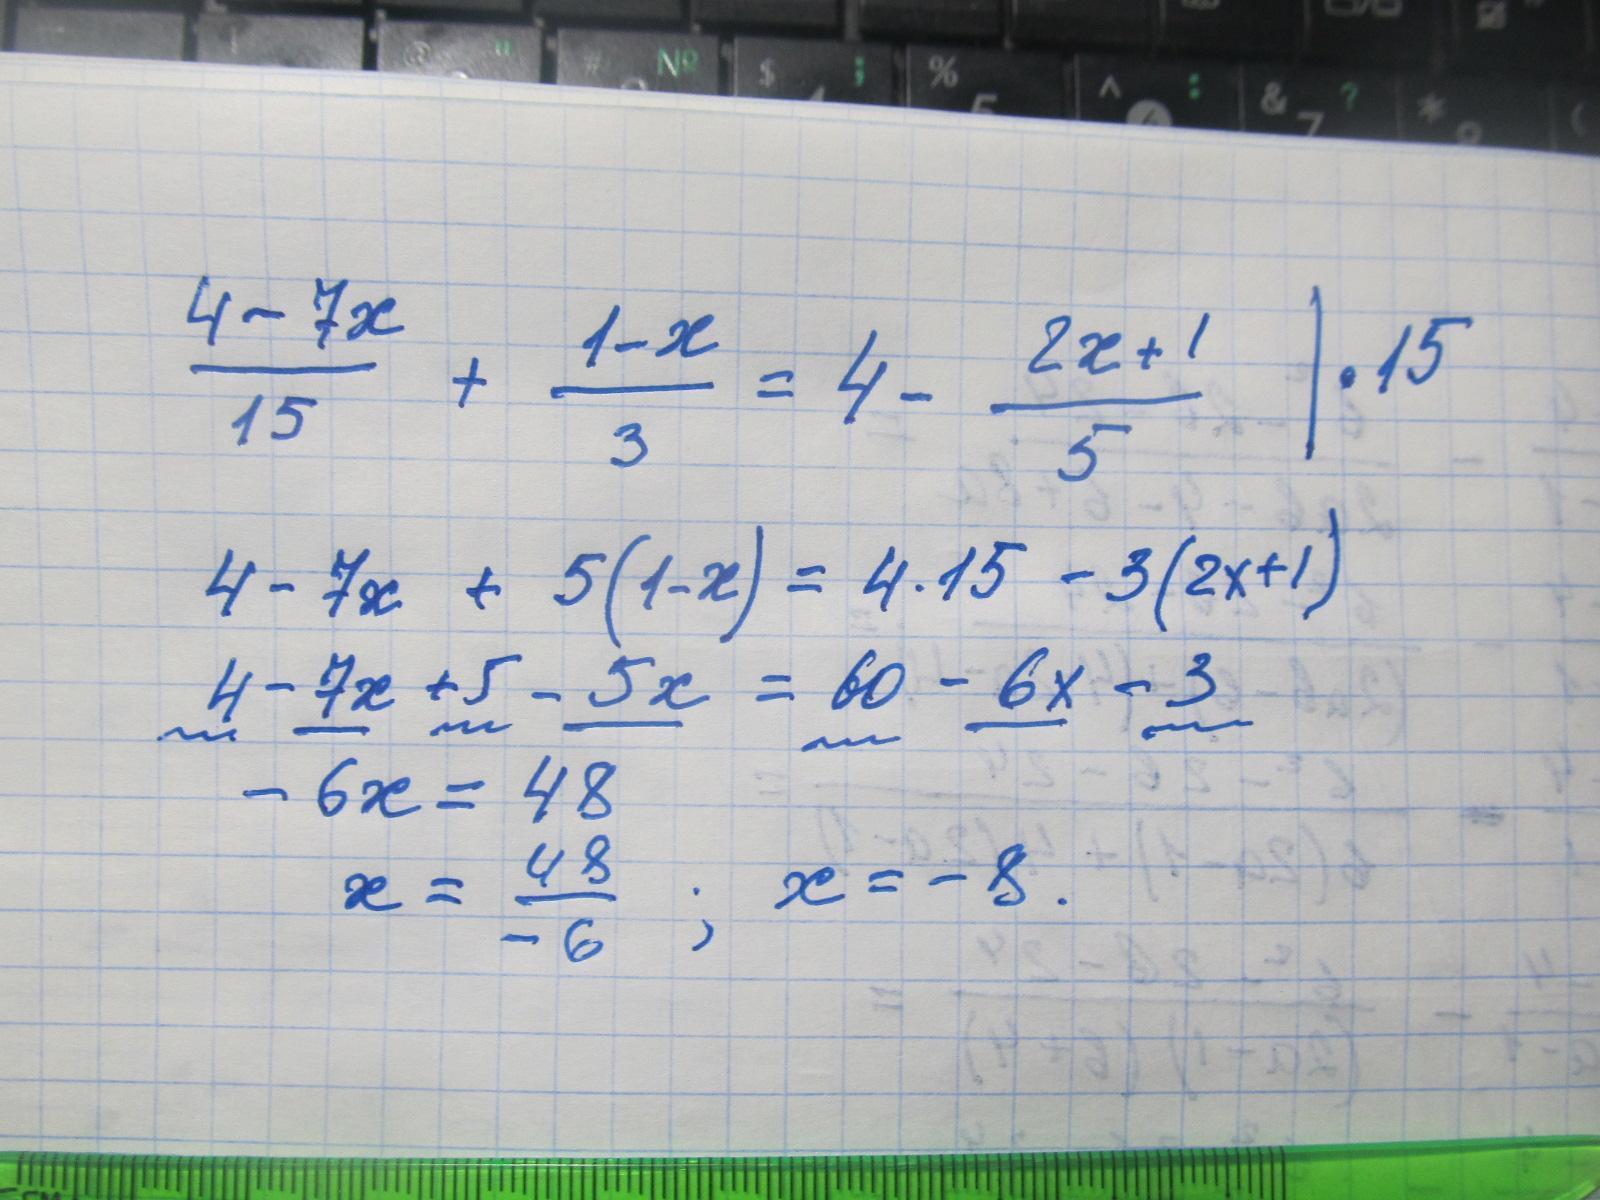 ! @ " # № $ ; % : & ? *
4 5 6 7
(4 - 7x)/15 + (1 - x)/3 = 4 - (2x + 1)/5 | · 15
4 - 7x + 5(1 - x) = 4 · 15 - 3(2x + 1)
4 - 7x + 5 - 5x = 60 - 6x - 3
- 6x = 48
x = 48/-6 ; x = - 8 .